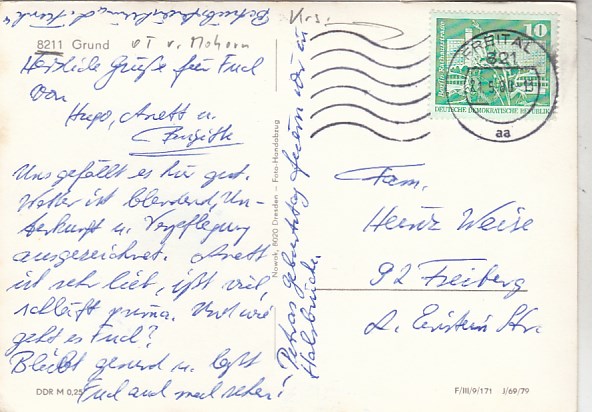 8211 Grund OT v. Mohorn
Herzliche Grüße für Euch
von
Hugo, Anett u.
Brigitte
Uns gefällt es hier gut.
Wetter ist blendend, Un-
terkunft u. Verpflegung
ausgezeichnet. Anett
ist sehr lieb, ißt viel,
schläft prima. Und wie
geht es Euch?
Bleibt gesund u. laßt
Euch auch mal sehen!
Petras Geburtstag feiern wir in
Halsbrücke.
Nowak, 8020 Dresden – Foto-Handabzug
Krs.
FREITAL
821
aa
10
Berlin, Rathausstraße
DEUTSCHE DEMOKRATISCHE REPUBLIK
Fam.
Heinz Weise
92 Freiberg
A. Einstein Str.
DDR M 0,25
F/III/9/171 J/69/79